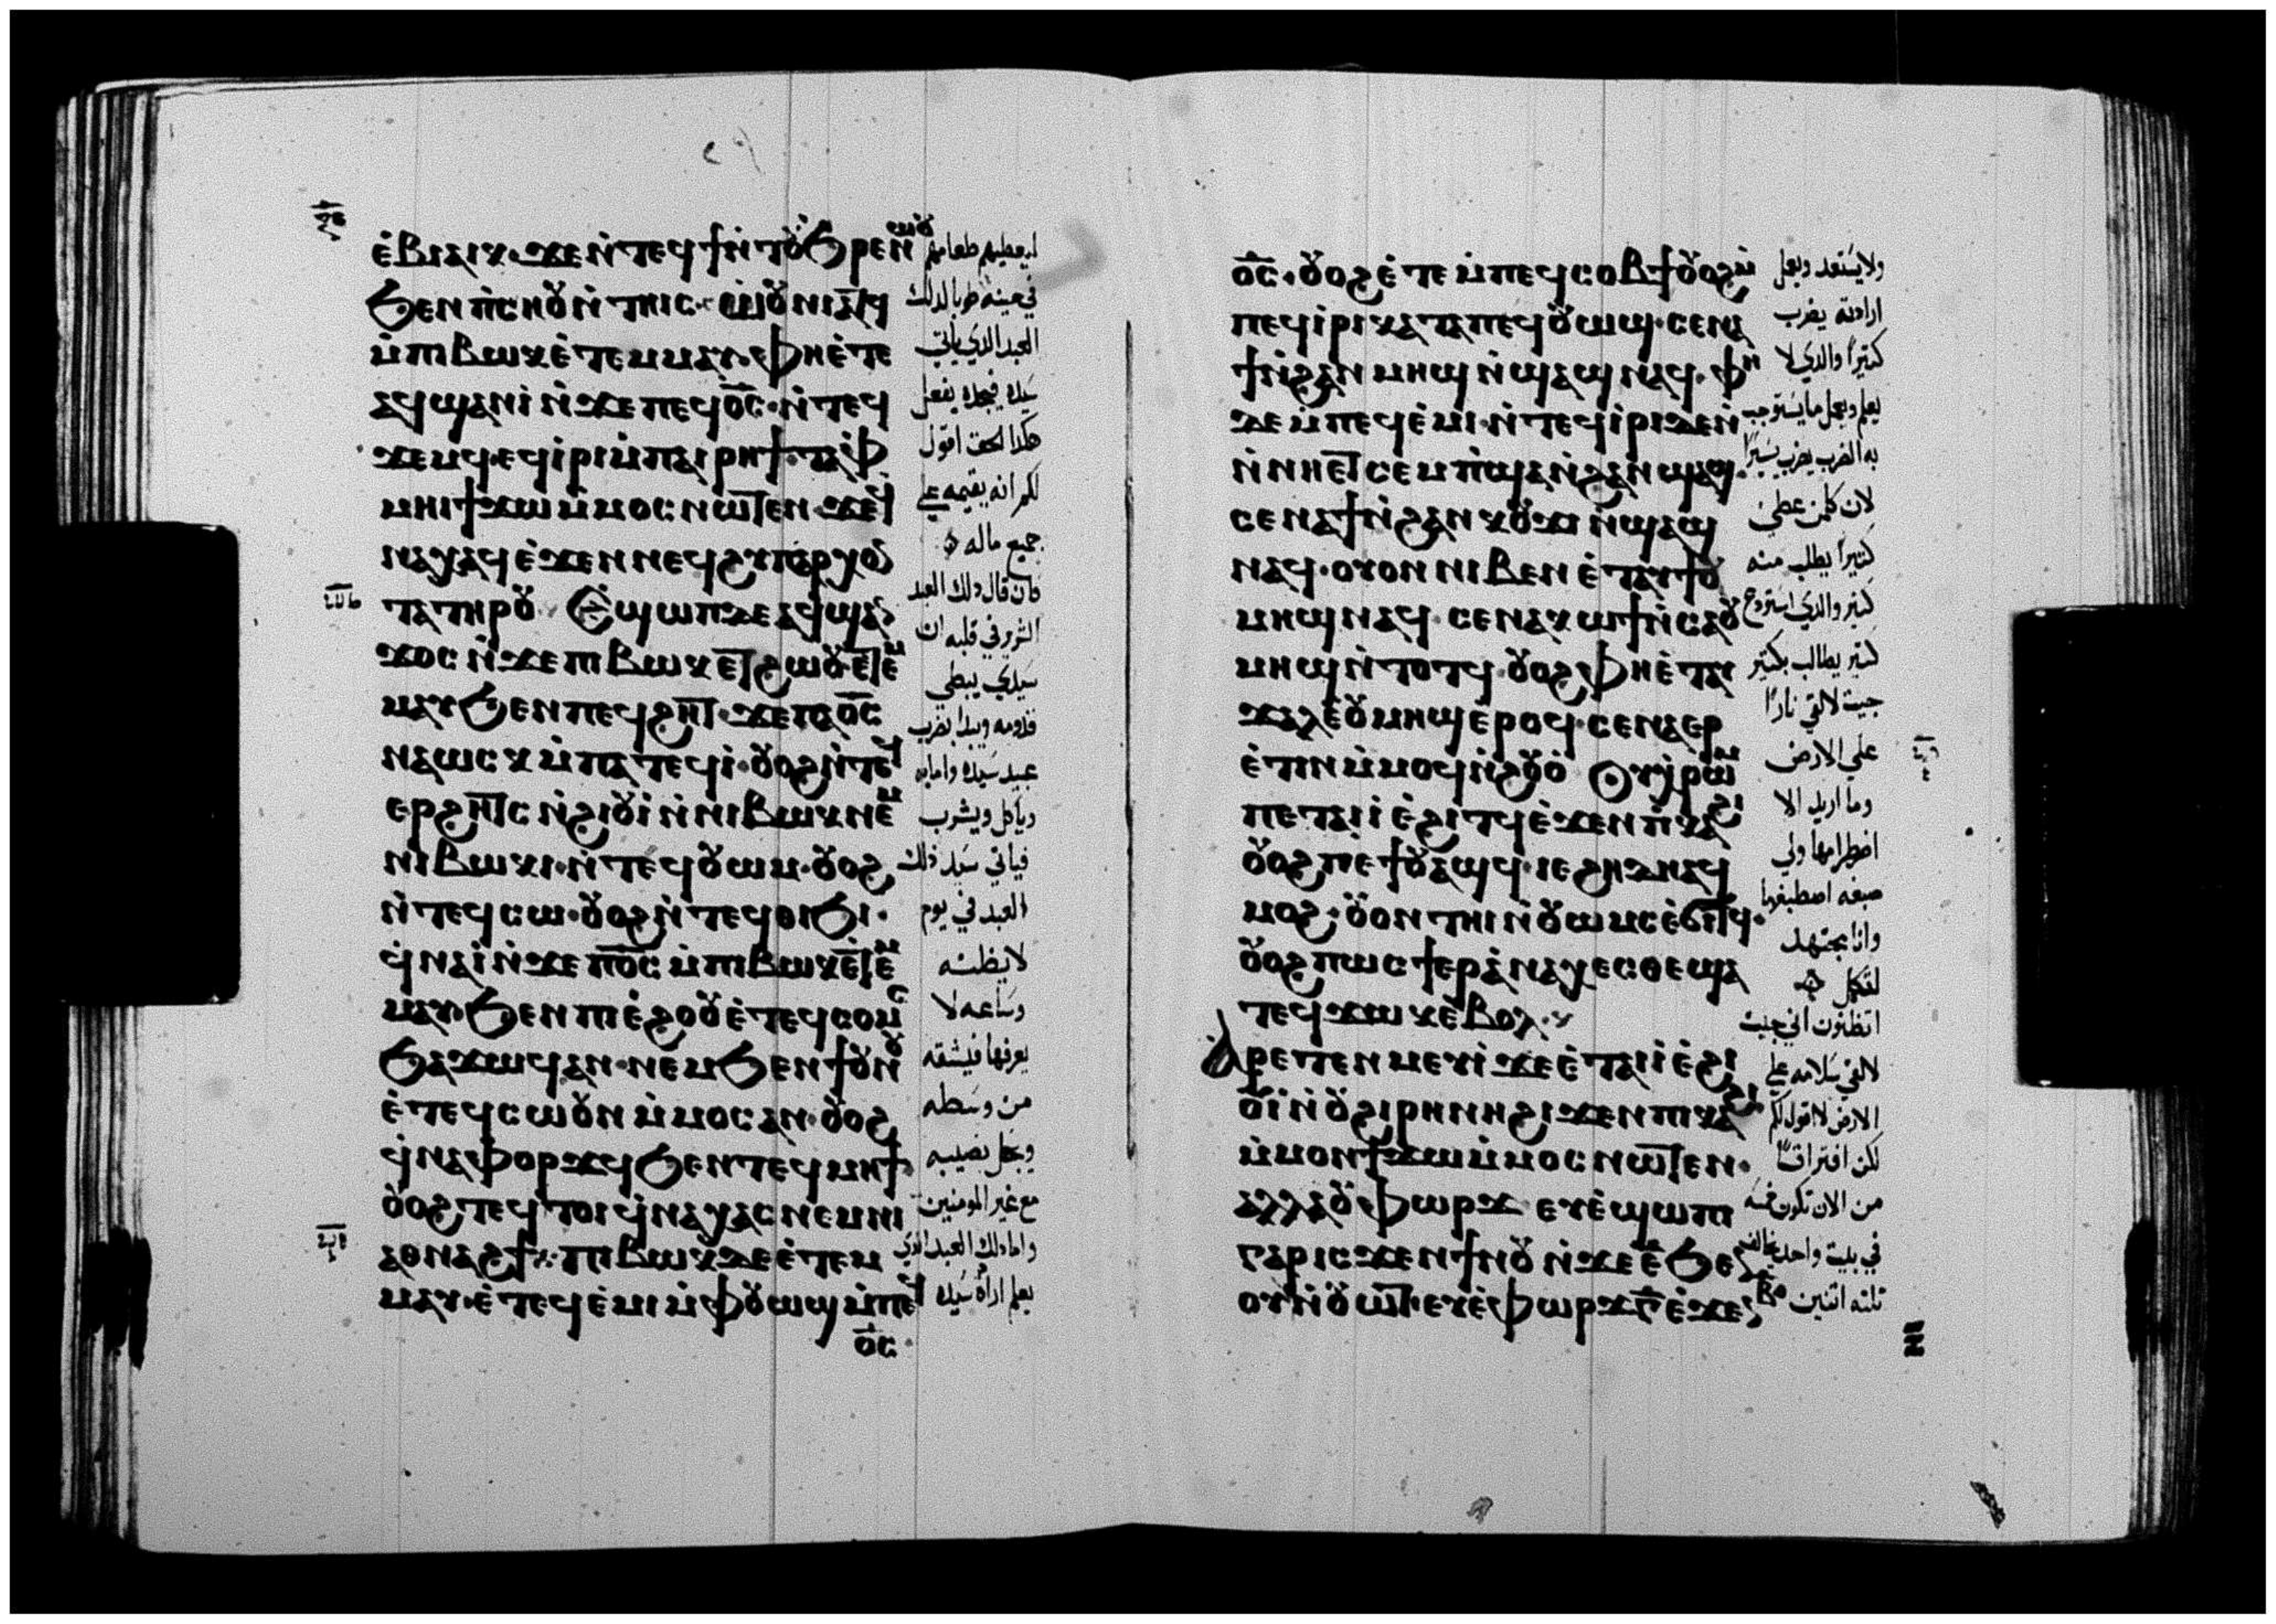 ⲉ̀ⲃⲓⲁⲓⲕ· ϫⲉ ⲛ̀ⲧⲉϥϯ ⲛ̀ⲧⲟⲩϧⲣⲉⲛ̀ⲱⲟⲩ
ϧⲉⲛ ⲡ̀ⲥⲏⲟⲩ ⲛ̀ⲧⲏⲓⲥ· ⲱ̀ⲟⲩⲛⲓⲁⲧϥ
ⲙ̀ⲡⲓⲃⲱⲕ ⲉ̀ⲧⲉⲙⲙⲁⲩ· ⲫⲏⲉ̀ⲧⲉ
ⲁϥϣⲁⲛⲓ̀ ⲛ̀ϫⲉ ⲡⲉϥⲟ̅ⲥ̅· ⲛ̀ⲧⲉϥ
ϫⲉⲙϥ· ⲉϥⲓ̀ⲣⲓ ⲙ̀ⲡⲁⲓⲣⲏϯ· ⲧⲁⲫ
ⲙⲏⲓ ϯϫⲱ ⲙ̀ⲙⲟⲥ ⲛⲱⲧⲉⲛ ϫⲉ ϥ̀
ⲛⲁⲭⲁϥ ⲉ̀ϫⲉⲛ ⲛⲉϥϩⲩⲡⲁⲣⲭⲟⲛ
ⲧⲁ ⲧⲏⲣⲟⲩ Ⲉϣⲱⲡ ⲇⲉ ⲁϥϣⲁⲛ
ϫⲟⲥ ⲛ̀ϫⲉ ⲡⲓⲃⲱⲕ ⲉⲧϩⲱⲟⲩ ⲉⲧⲉ̀ⲙ
ⲙⲁⲩ ϧⲉⲛ ⲡⲉϥϩⲏⲧ· ϫⲉ ⲡⲁⲟ̅ⲥ̅
ⲛⲁⲱⲥⲕ ⲙ̀ⲡⲁⲧⲉϥⲓ̀· ⲟⲩⲟϩ ⲛ̀ⲧⲉϥ
ⲉⲣϩⲏⲧⲥ ⲛ̀ϩⲓⲟⲩⲓ̀ ⲛ̀ⲛⲓⲃⲱⲕ ⲛⲉⲙ
ⲛⲓⲃⲱⲕⲓ· ⲛ̀ⲧⲉϥⲟⲩⲱⲙ· ⲟⲩⲟϩ
ⲛ̀ⲧⲉϥⲥⲱ· ⲟⲩⲟϩ ⲛ̀ⲧⲉϥⲑⲓϧⲓ·
ϥ̀ⲛⲁⲓ̀ ⲛ̀ϫⲉ ⲡⲟ̅ⲥ̅ ⲙ̀ⲡⲓⲃⲱⲕ ⲉⲧⲉ̀ⲙ
ⲙⲁⲩ ϧⲉⲛ ⲡⲓⲉ̀ϩⲟⲟⲩ ⲉ̀ⲧⲉϥⲥⲟⲙⲥ
ϧⲁϫⲱϥ ⲁⲛ· ⲛⲉⲙ ϧⲉⲛ ϯⲟⲩⲛⲟⲩ
ⲉ̀ⲧⲉϥⲥⲱⲟⲩⲛ ⲙ̀ⲙⲟⲥ ⲁⲛ· ⲟⲩⲟϩ
ϥ̀ⲛⲁⲫⲟⲣϫϥ ϧⲉⲛ ⲧⲉϥⲙⲏϯ
ⲟⲩⲟϩ ⲧⲉϥⲧⲟⲓ ϥ̀ⲛⲁⲭⲁⲥ ⲛⲉⲙ ⲛⲓ
ⲁⲑⲛⲁϩϯ· ⲡⲓⲃⲱⲕ ⲇⲉ ⲉ̀ⲧⲉⲙ
ⲙⲁⲩ· ⲉ̀ⲧⲉϥⲉ̀ⲙⲓ ⲙ̀ⲫⲟⲩⲱϣ ⲙ̀ⲡⲉϥ
ⲟ̅ⲥ̅
ليعطيهم طعامهم
في حينه طوبا لدلك
العبد الدي ياتي
سيده فيجده يفعل
هكدا الحق اقول
لكم انه يقيمه علي
جميع ماله
فان قال دلك العبد
الشرير في قلبه ان
سيدي يبطي
قدومه ويبدا بضرب
عبيد سيده واماته
وياكل ويشرب
فياتي سيد ذلك
العبد في يوم
لا يظنه
وساعه لا
يعرفها فيشقه
من وسطه
ويجعل نصيبه
مع غير المومنين
واما دلك العبد الدي
يعلم ارادة سيده
ⲟ̅ⲥ̅· ⲟⲩⲟϩ ⲉ̀ⲧⲉ ⲙ̀ⲡⲉϥⲥⲟⲃϯ ⲟⲩⲟϩ ⲙ̀
ⲡⲉϥⲓ̀ⲣⲓ ⲕⲁⲧⲁ ⲡⲉϥⲟⲩⲱϣ· ⲥⲉⲛⲁ
ϯ ⲛ̀ϩⲁⲛ ⲙⲏϣ ⲛ̀ϣⲁϣ ⲛⲁϥ· ⲫⲏ
ⲇⲉ ⲙ̀ⲡⲉϥⲉ̀ⲙⲓ· ⲛ̀ⲧⲉϥⲓ̀ⲣⲓ ⲇⲉ ⲛ̀
ⲛ̀ⲛⲏⲉⲧⲥⲉⲙⲡ̀ϣⲁ ⲛ̀ϩⲁⲛ ϣⲁϣ·
ⲥⲉⲛⲁϯ ⲛ̀ϩⲁⲛ ⲕⲟⲩϫⲓ ⲛ̀ϣⲁϣ
ⲛⲁϥ· ⲟⲩⲟⲛ ⲛⲓⲃⲉⲛ ⲉ̀ⲧⲁⲩϯ ⲟⲩ
ⲙⲏϣ ⲛⲁϥ· ⲥⲉⲛⲁⲕⲱϯ ⲛ̀ⲥⲁ ⲟⲩ
ⲙⲏϣ ⲛ̀ⲧⲟⲧϥ· ⲟⲩⲟϩ ⲫⲏⲉ̀ⲧⲁⲩ
ϫⲁⲗⲉ ⲟⲩⲙⲏϣ ⲉ̀ⲣⲟϥ· ⲥⲉⲛⲁⲉⲣ
ⲉ̀ⲧⲓⲛ ⲙ̀ⲙⲟϥ ⲛ̀ϩⲟⲩⲟ̀ Ⲟⲩⲭ̀ⲣⲱⲙ
ⲡⲉⲧⲁⲓⲓ̀ ⲉ̀ϩⲓⲧϥ ⲉ̀ϫⲉⲛ ⲡ̀ⲕⲁϩⲓ
ⲟⲩⲟϩ ⲡⲉϯⲟⲩⲁϣϥ· ⲓⲉ ϩⲏⲇⲏ ⲁϥ
ⲙⲟϩ· ⲟⲩⲟⲛⲧⲏⲓ ⲛ̀ⲟⲩⲱⲙⲥ ⲉ̀ϭⲓⲧϥ·
ⲟⲩⲟϩ ⲡⲱⲥ ϯⲉⲣⲁ̀ⲛⲁⲭⲉⲥⲑⲉ ϣⲁ
ⲧⲉϥϫⲱⲕ ⲉ̀ⲃⲟⲗ·
Ⲁⲣⲉⲧⲉⲛⲙⲉⲩⲓ̀ ϫⲉ ⲉ̀ⲧⲁⲓⲓ̀ ⲉ̀ϩⲓ
ⲟⲩⲓ̀ ⲛ̀ⲟⲩϩⲓⲣⲏⲛⲏ ϩⲓϫⲉⲛ ⲡⲓⲕⲁϩⲓ·
ⲙ̀ⲙⲟⲛ ϯϫⲱ ⲙ̀ⲙⲟⲥ ⲛⲱⲧⲉⲛ·
ⲁⲗⲗⲁ ⲟⲩⲫⲱⲣϫ ⲉⲩⲉ̀ϣⲱⲡⲓ
ⲅⲁⲣ ⲓⲥϫⲉⲛ ϯⲛⲟⲩ ⲛ̀ϫⲉ ⲉ̅ ϧⲉⲛ
ⲟⲩⲏⲓ ⲛ̀ⲟⲩⲱⲧ· ⲉⲩⲉ̀ⲫⲱⲣϫ ⲅ̅ ⲉ̀ϫⲉⲛ ⲃ̅
ولا يستعد ويعمل
ارادته يضرب
كتيرا والدي لا
يعلم ويعمل ما يستوجب
به الضرب يضرب يسيرا
لان كلمن عطي
كثيرا يطلب منه
كتير والدي استودع
كتير يطالب بكتير
جيت لالقي نارا
علي الارض
وما اريد الا
اضطرامها ولي
صبغه اصطبغها
وانا مجتهد
لتكمل
اتظنون اني جيت
لالقي سلامه علي
الارض لا اقول لكم
لكن افتراقا
من الان تكون خمسه
في بيت واحد يخالف
تلته اتنين